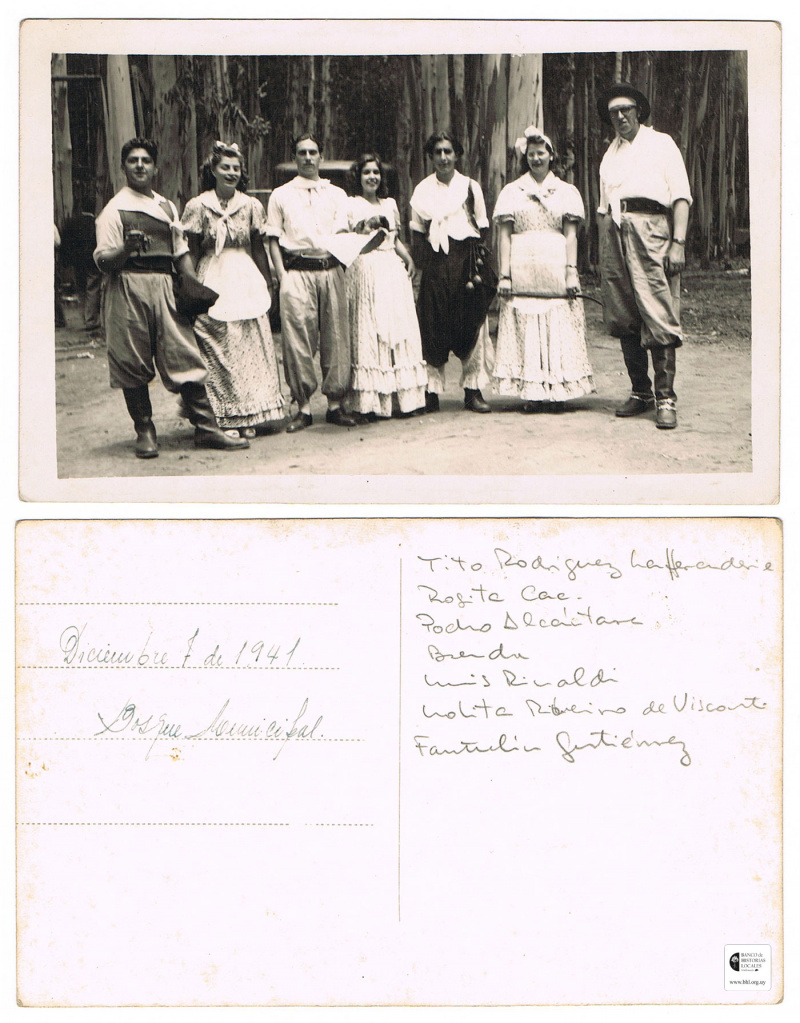 Diciembre 7 de 1941
Bosque Municipal.
Tito Rodriguez Lafferanderie
Rosita Cac.
Pedro Alcántara
Brenda
Luis Rinaldi
Lolita Ribeiro de Visconti
Fantulin Gutiérrez
BANCO de
HISTORIAS
LOCALES
www.bhl.org.uy